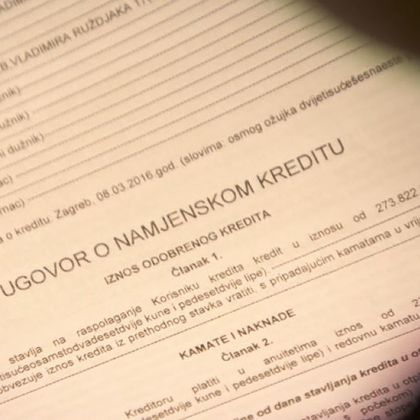 B.VLADIMIRA RUŽDJAKA
dužnik)
dužnik)
ni dužnik)
mac)
mac)
a o kreditu Zagreb, 08.03.2016.god. (slovima: osmog ožujka dvijetisućešesnaeste
UGOVOR O NAMJENSKOM KREDITU
IZNOS ODOBRENOG KREDITA
Članak 1.
stavlja na raspolaganje Korisniku kredita kredit u iznosu od 273 822
tisućeosamstodvadesetdvije kune i pedesetdvije lipe)
obvezuje iznos kredita iz prethodnog stavka vratiti, s pripadajućim kamatama u
KAMATE I NAKNADE
Članak 2.
Kreditoru platiti u anuitetima iznos od
adesetdvije kune i pedesetdvije lipe) i redovnu kamatu
ne od dana stavljanja kredita u